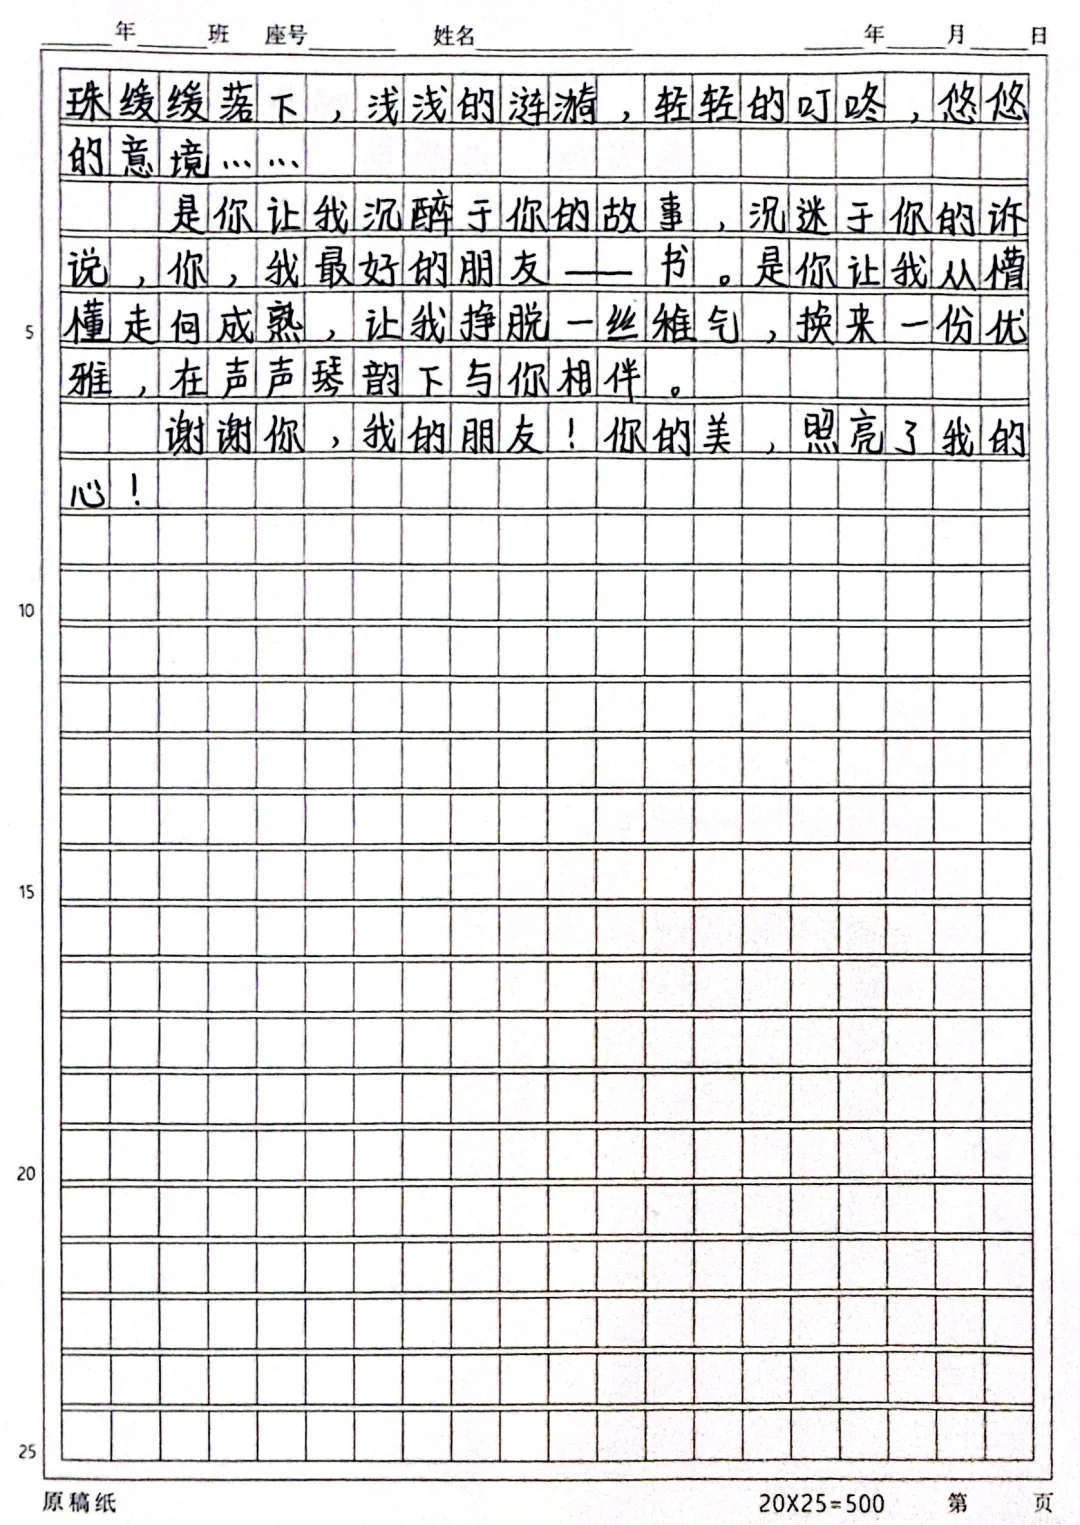 年 班 座号 姓名 年 月 日
珠缓缓落下，浅浅的涟漪，轻轻的叮咚，悠悠
的意境……
是你让我沉醉于你的故事，沉迷于你的诉
说，你，我最好的朋友——书。是你让我从懵
5 懂走向成熟，让我挣脱一丝稚气，换来一份优
雅，在声声琴韵下与你相伴。
谢谢你，我的朋友！你的美，照亮了我的
心！
10
15
20
25
原稿纸 20X25=500 第 页